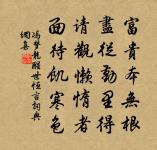 富貴本無根
盡從勤裏得
請觀懶惰者
面待飢寒色
馮夢龍醒世恒言詞典